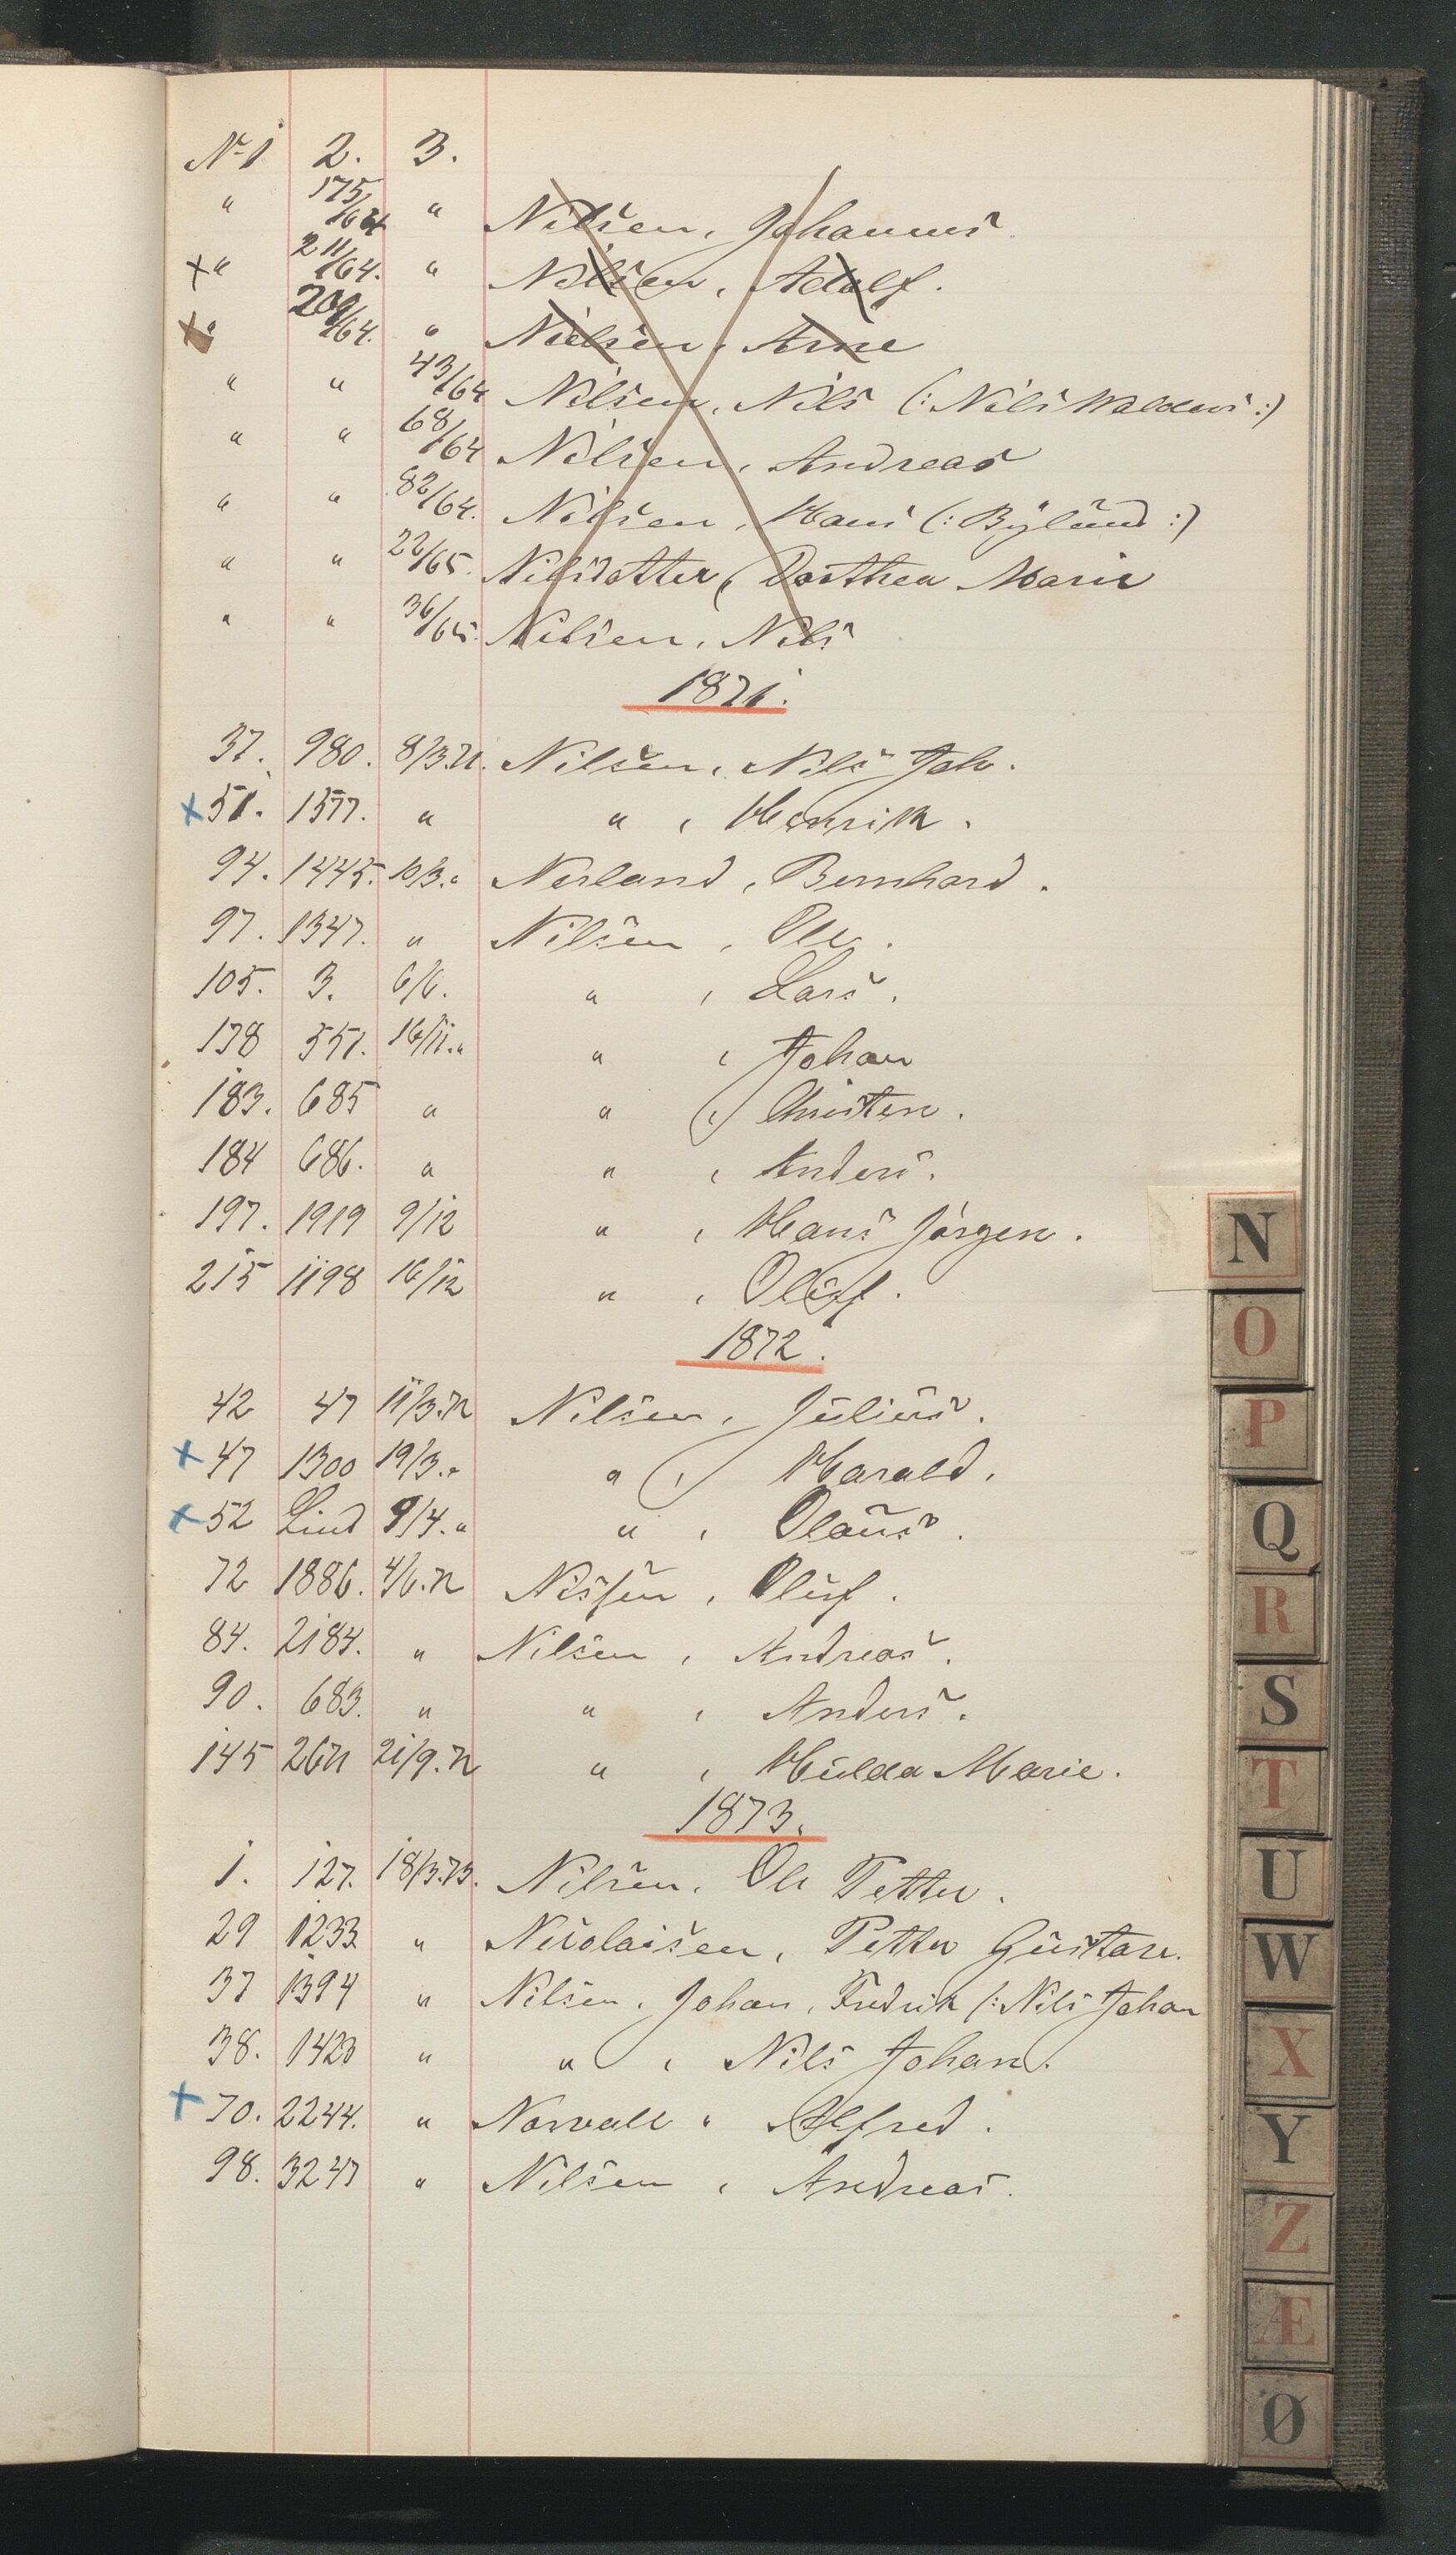 No 1 2. 3.
" 175/64 " Nilsen, Johannes
+ " 211/64. " Nilsen, Adolf.
+ " 209/64. " Nielsen, Arne
" " 43/64 Nilsen, Nils (: Nils Walders :)
" " 68/64 Nilsen, Andreas
" " 82/64. Nilsen, Hans (: Bylund :)
" " 22/65. Nilsdatter, Dorthea Marie
" " 36/65. Nilsen, Nils
1871.
37. 980. 8/3.71. Nilsen, Nils Joh.
+ 51. 1577. " " , Henrik.
94. 1445. 10/3. " Nerland, Bernhard.
97. 1347. " Nilsen, Ole.
105. 3. 6/6. " , Lars.
138 551. 16/11. " " , Johan
183. 685 " " , Christen.
184 686. " " , Anders.
197. 1919 9/12 " , Hans Jørgen.
215 1198 16/12 " , Oluf.
1872.
42 47 11/3.72 Nilsen, Julius.
+ 47 1300 19/3. " " , Harald.
+ 52 Lind 9/4. " " , Olaus.
72 1886. 4/6.72 Nissen, Oluf.
84. 2184. " Nilsen, Andreas.
90. 683. " " , Anders.
145 2671 21/9.72 " , Hulda Marie.
1873.
1. 127. 18/3.73. Nilsen, Ole Petter.
29 1233. " Nicolaisen, Petter Gustav.
37 1394 " Nilsen, Johan, Fredrik (: Nils Johan
38. 1423 " " , Nils Johan.
+ 70. 2244. " Norvall, Alfred.
98. 3247 " Nilsen, Andreas.
N
O
P
Q
R
S
T
U
W
X
Y
Z
Æ
Ø